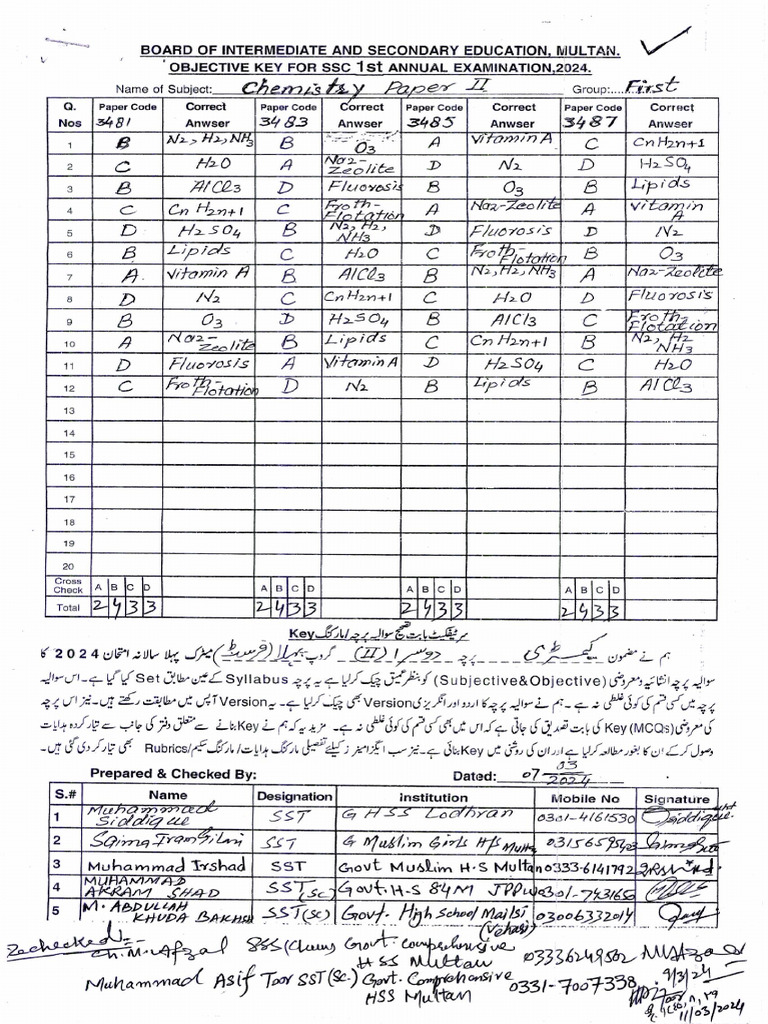 BOARD OF INTERMEDIATE AND SECONDARY EDUCATION, MULTAN.
OBJECTIVE KEY FOR SSC 1st ANNUAL EXAMINATION,2024.
Name of Subject: Chemistry Paper II Group:....First
Q. Nos Paper Code 3481 Correct Anwser Paper Code 3483 Correct Anwser Paper Code 3485 Correct Anwser Paper Code 3487 Correct Anwser
1 B N2, H2, NH3 B O3 A Vitamin A C CnH2n+1
2 C H2O A Na2-Zeolite D N2 D H2SO4
3 B AlCl3 D Fluorosis B O3 B Lipids
4 C CnH2n+1 C Froth-Flotation A Na2-Zeolite A Vitamin A
5 D H2SO4 B N2, H2, NH3 D Fluorosis D N2
6 B Lipids C H2O C Froth-Flotation B O3
7 A Vitamin A B AlCl3 B N2, H2, NH3 A Na2-Zeolite
8 D N2 C CnH2n+1 C H2O D Fluorosis
9 B O3 D H2SO4 B AlCl3 C Froth-Flotation
10 A Na2-Zeolite B Lipids C CnH2n+1 B N2, H2 NH3
11 D Fluorosis A Vitamin A D H2SO4 C H2O
12 C Froth-Flotation D N2 B Lipids B AlCl3
13
14
15
16
17
18
19
20
Cross Check A B C D A B C D A B C D A B C D
Total 2 4 3 3 2 4 3 3 2 4 3 3 2 4 3 3
سرٹیفکیٹ بابت تصحیح سوالیہ پرچہ/مارکنگ Key
ہم نے مضمون کیمسٹری پرچہ دوسرا (II) گروپ پہلا (فرسٹ) میٹرک پہلا سالانہ امتحان 2024 کا
سوالیہ پرچہ انشائیہ و معروضی (Subjective&Objective) کو بنظر عمیق چیک کرلیا ہے یہ پرچہ Syllabus کے عین مطابق Set کیا گیا ہے۔ اس سوالیہ
پرچہ میں کسی قسم کی کوئی غلطی نہ ہے۔ ہم نے سوالیہ پرچہ کا اردو اور انگریزی Version بھی چیک کرلیا ہے۔ یہ Version آپس میں مطابقت رکھتے ہیں۔ نیز اس پرچہ
کی معروضی (MCQs) Key کی بابت تصدیق کی جاتی ہے کہ اس میں بھی کسی قسم کی کوئی غلطی نہ ہے۔ مزید یہ کہ ہم نے Key بنانے سے متعلق دفتر کی جانب سے تیار کردہ ہدایات
وصول کرکے ان کا بغور مطالعہ کرلیا ہے اور ان کی روشنی میں Key بنائی ہے۔ نیز سب ایگزامینرز کیلئے تفصیلی مارکنگ ہدایات/مارکنگ سکیم/Rubrics بھی تیار کر دی گئی ہیں۔
Prepared & Checked By: Dated: 07-03-2024
S.# Name Designation Institution Mobile No Signature
1 Muhammad Siddique SST GHSS Lodhran 0301-4161530 Siddique
2 SST G Muslim Girls
3 Muhammad Irshad SST Govt Muslim H-S Multan 0333-6141792
4 MUHAMMAD AKRAM SHAD SST (SC) Govt. H-S 84M
5 M. ABDULLAH KHUDA BAKHSH SST (SC) Govt. High School Mailsi (Vehari) 03006332014
Rechecked:- Ch. M. Afzal SSS (Chem) Govt. Comprehensive HSS Multan 03336249502
Muhammad Asif Toor SST (SC.) Govt. Comprehensive HSS Multan 0331-7007338
9/3/24
11/03/2024